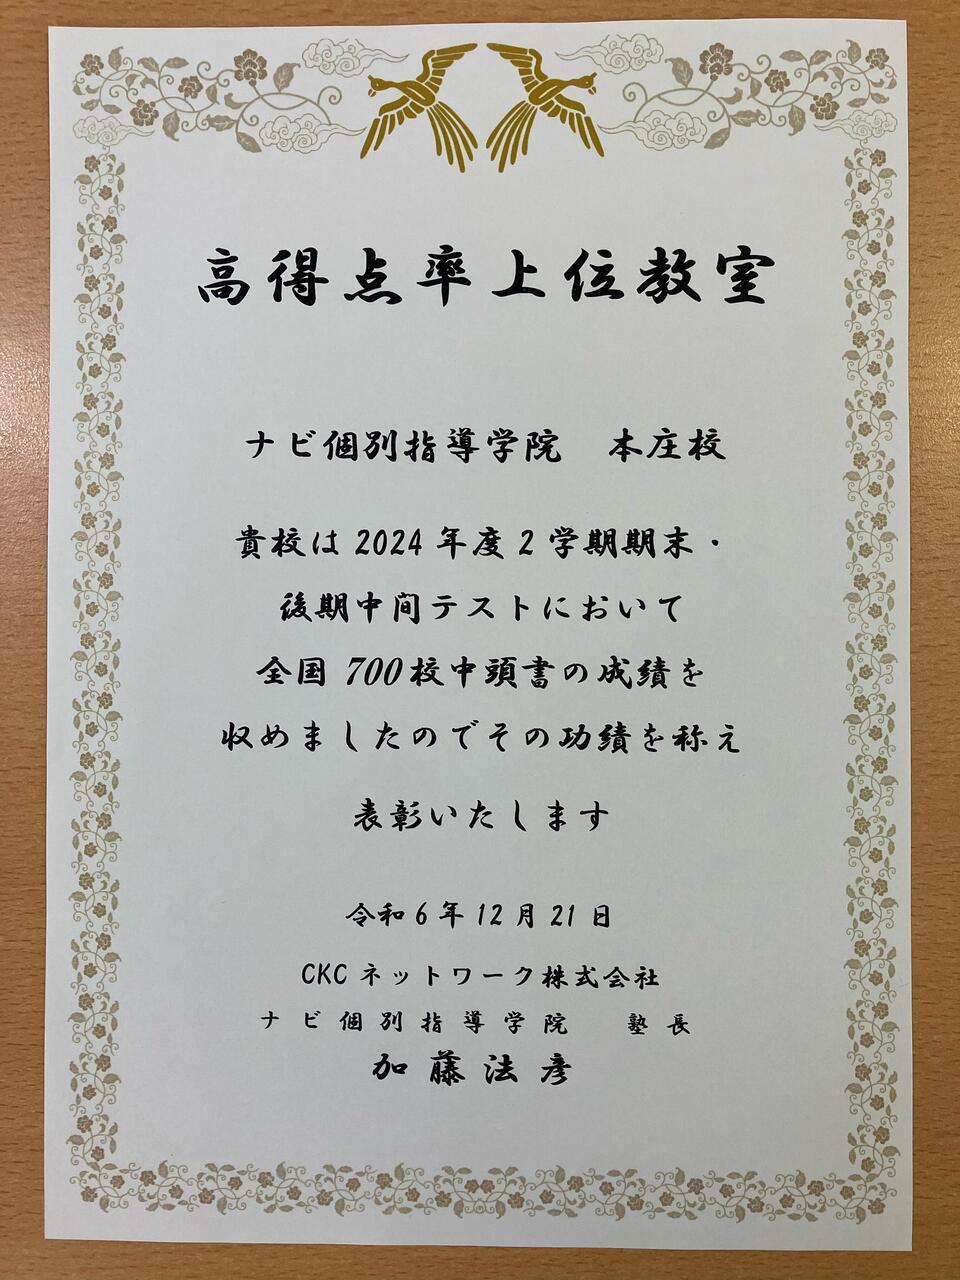 高得点率上位教室
ナビ個別指導学院　本庄校
貴校は2024年度2学期期末・
後期中間テストにおいて
全国700校中頭書の成績を
収めましたのでその功績を称え
表彰いたします
令和6年12月21日
CKCネットワーク株式会社
ナビ個別指導学院　塾長
加藤法彦